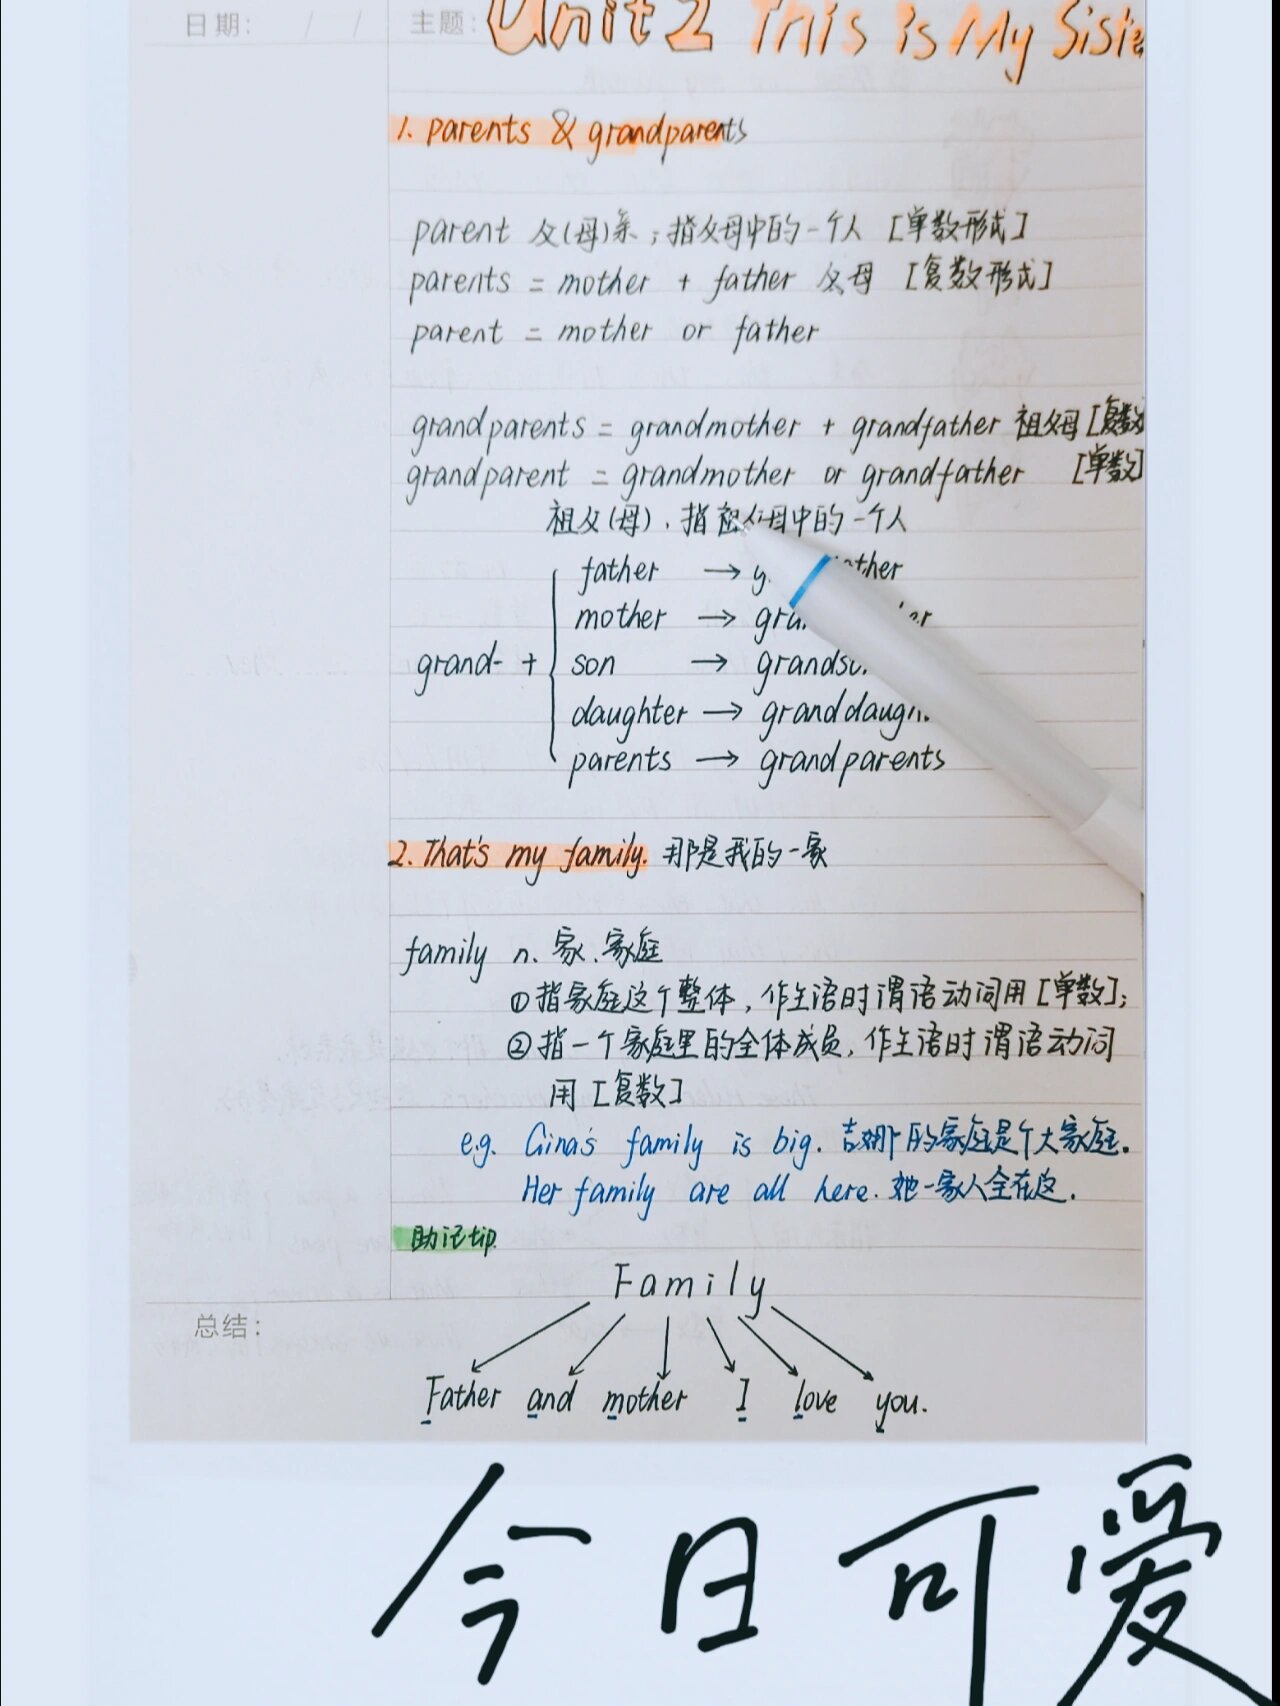 日期： / / 主题：Unit 2 This is My Siste
1. parents & grandparents
parent 父(母)亲；指父母中的一个人 [单数形式]
parents = mother + father 父母 [复数形式]
parent = mother or father
grandparents = grandmother + grandfather 祖父母 [复数
grandparent = grandmother or grandfather [单数]
祖父(母)，指祖父母中的一个人
father →
mother →
grand- + son →
daughter →
parents → grandparents
2. That's my family. 那是我的一家
family n. 家、家庭
①指家庭这个整体，作主语时谓语动词用[单数]；
②指一个家庭里的全体成员，作主语时谓语动词
用[复数]
e.g. Gina's family is big. 吉娜的家庭是个大家庭。
Her family are all here. 她一家人全在这.
助记tip
Family
总结：
Father and mother I love you.
今日可爱